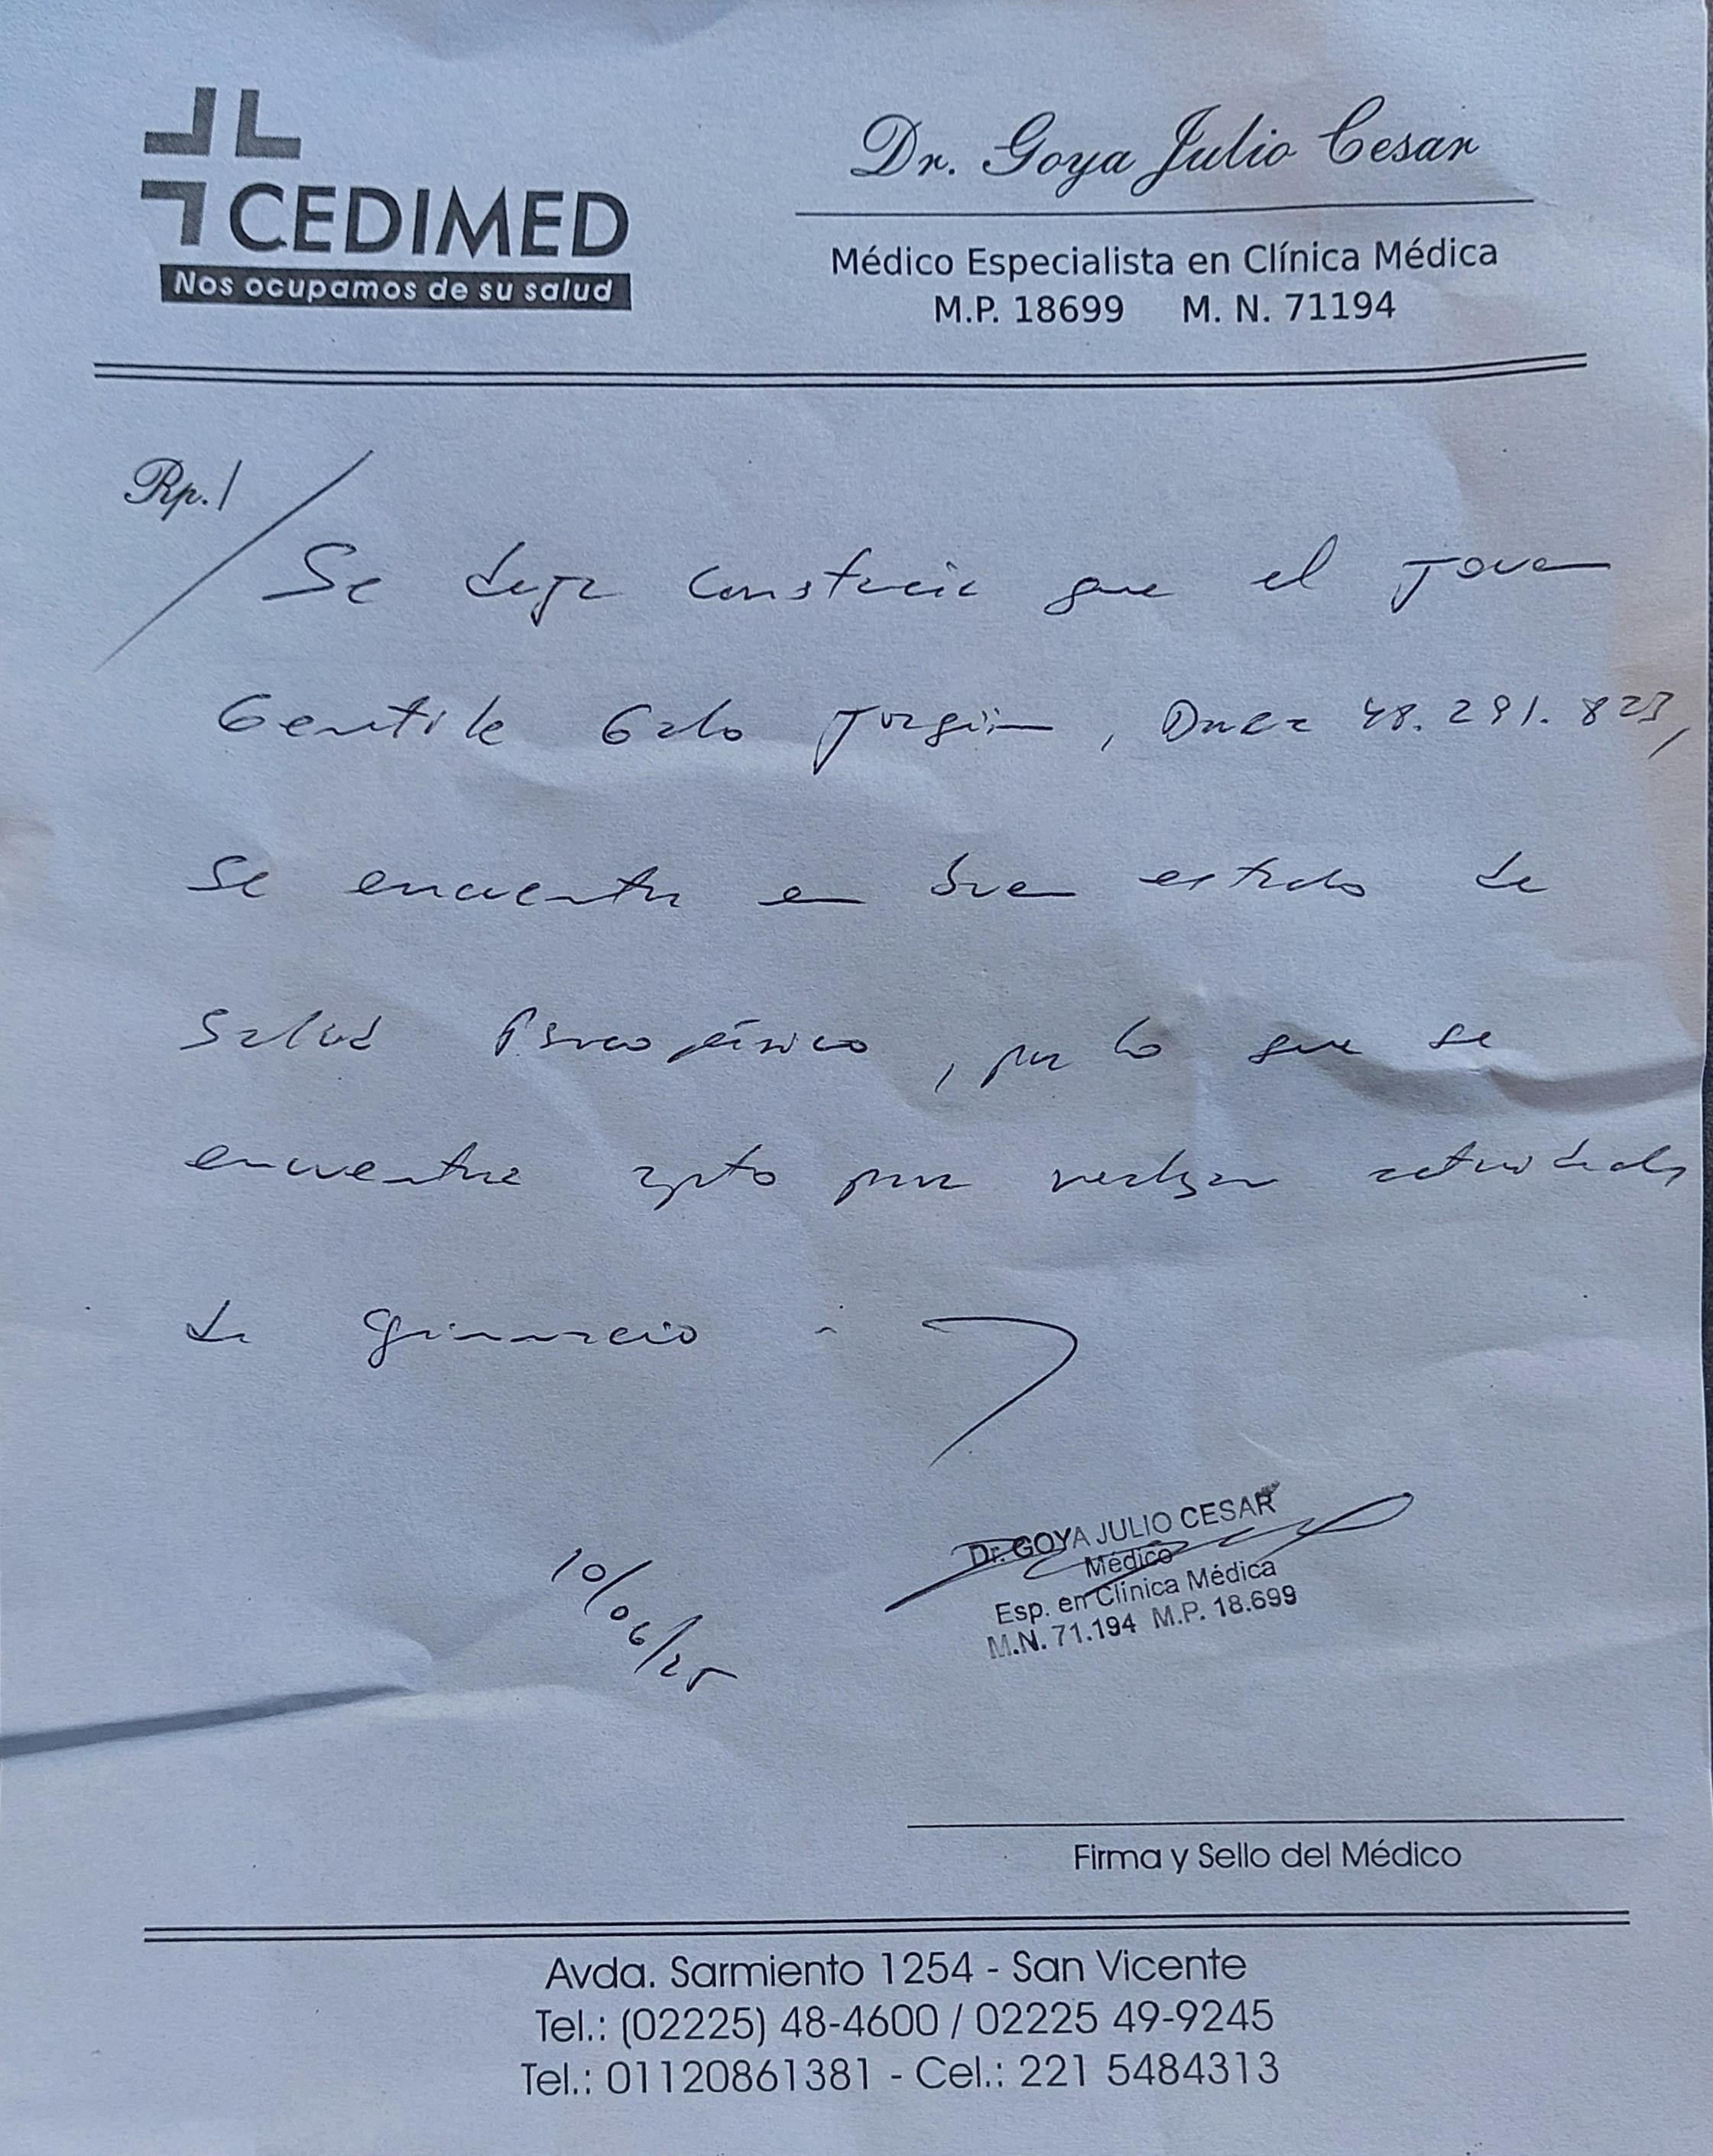 CEDIMED
Nos ocupamos de su salud
Dr. Goya Julio Cesar
Médico Especialista en Clínica Médica
M.P. 18699 M. N. 71194
Rp./
Se deja constancia que el joven
Gentile Galo , 48.291.823,
se encuentra en buen estado de
salud psicofísico, por lo que se
encuentra apto para realizar actividades
de gimnasio
10/06/25
Dr. GOYA JULIO CESAR
Médico
Esp. en Clínica Médica
M.N. 71.194 M.P. 18.699
Firma y Sello del Médico
Avda. Sarmiento 1254 - San Vicente
Tel.: (02225) 48-4600 / 02225 49-9245
Tel.: 01120861381 - Cel.: 221 5484313